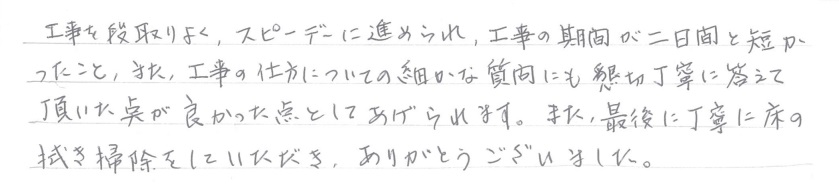 工事を段取りよく、スピーデーに進められ、工事の期間が二日間と短か
ったこと、また、工事の仕方についての細かな質問にも懇切丁寧に答えて
頂いた点が良かった点としてあげられます。また、最後に丁寧に床の
拭き掃除をしていただき、ありがとうございました。